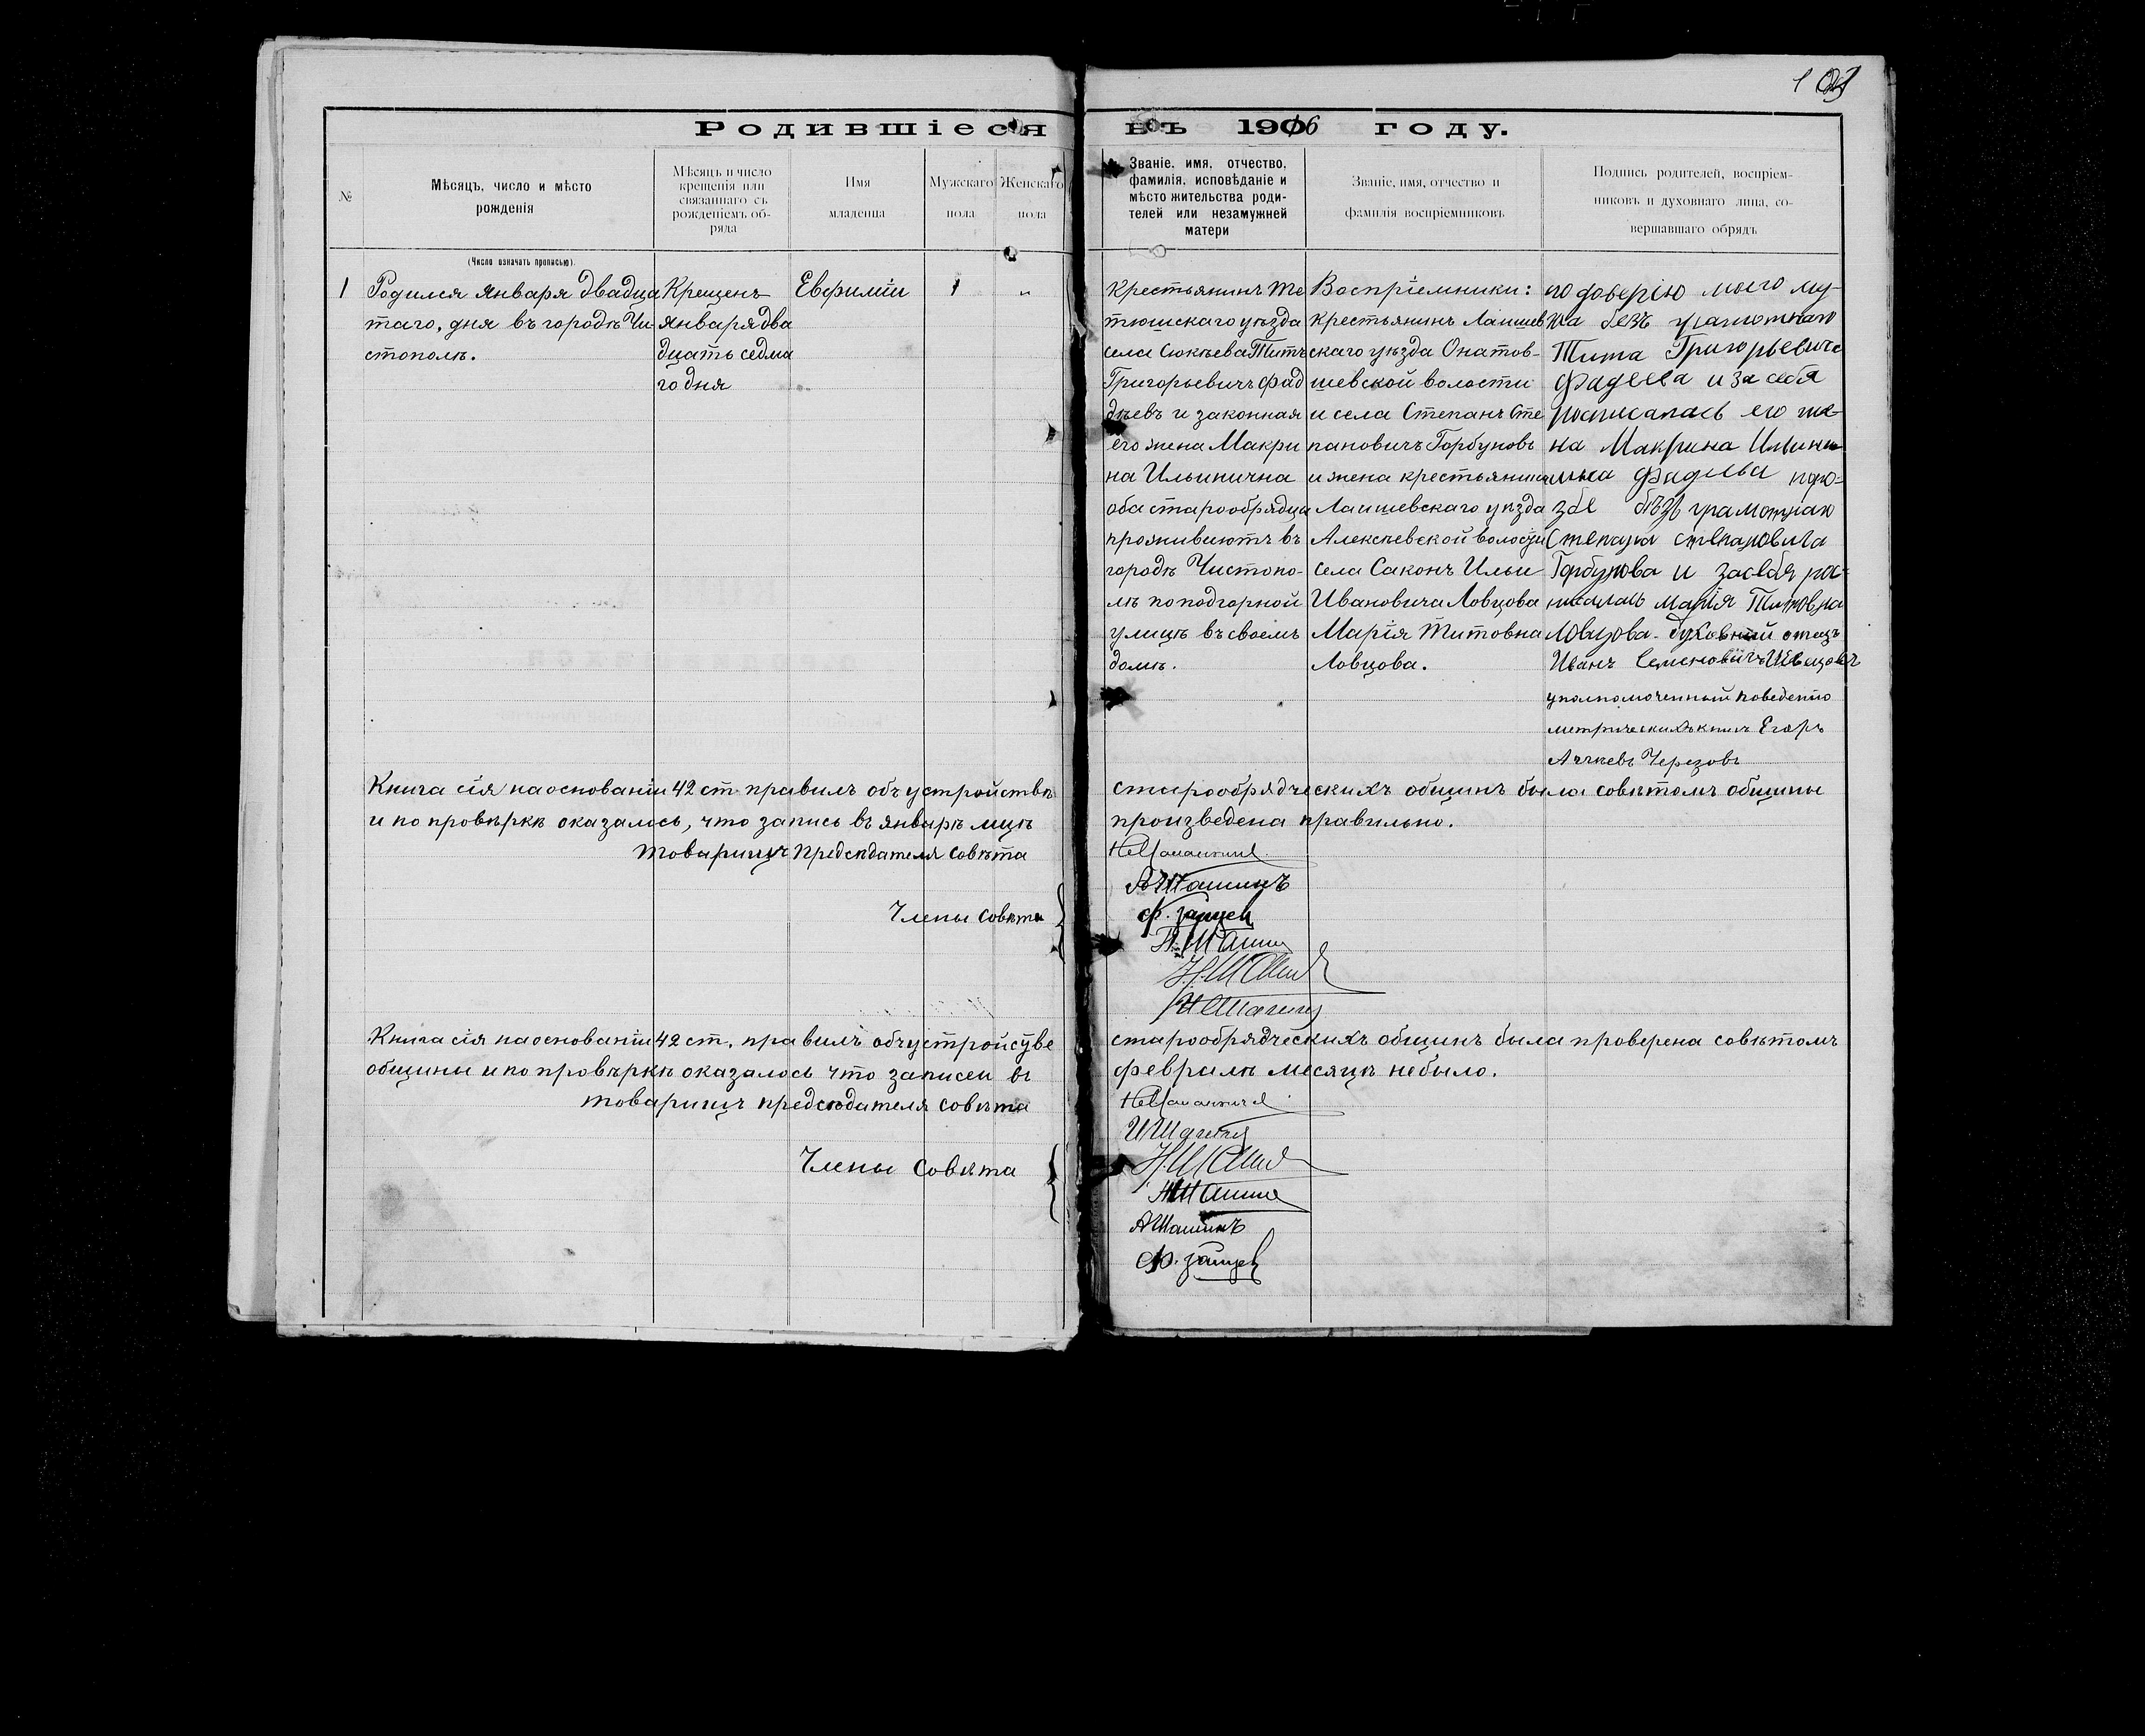 Родившіеся въ 1916 году.
№
Мѣсяцъ, число и мѣсто
рожденія
Мѣсяцъ и число
крещенія или
связаннаго съ
рожденіемъ об-
ряда
Имя
младенца
Мужскаго
пола
Женскаго
пола
Званіе, имя, отчество,
фамилія, исповѣданіе и
мѣсто жительства роди-
телей или незамужней
матери
Званіе, имя, отчество и
фамилія воспріемниковъ
Подпись родителей, воспріем-
никовъ и духовнаго лица, со-
вершавшаго обрядъ
(Число означать прописью).
1
Родился Января двадца
таго, дня въ городѣ Чи-
стополѣ.
Крещенъ
января два
дцать седма
го дня
Евфимій
1
"
Крестьянинъ Те
тюшскаго уѣзда
села Сюкѣева Титъ
Григорьевичъ Фад
дѣевъ и законная
его жена Макри
на Ильинична
оба старообрядцы
проживаютъ въ
городѣ Чистопо-
лѣ по подгорной
улицѣ въ своемъ
домѣ.
Воспріемники:
крестьянинъ Лаишев
скаго уѣзда Онатов-
шевской волости
и села Степанъ Сте
пановичъ Горбуновъ
и жена крестьянина
Лаишевскаго уѣзда
Алексѣевской волости
села Саконъ Ильи
Ивановича Ловцова
Марія Титовна
Ловцова.
по доверію моего му-
жа безъ грамотнаго
Тита Григорьевича
Фадеева и за себя
росписалась его же-
на Макрина Ильини
Фадѣева
безъ грамотнаго
Степана степановича
Горбунова и за себя
Марія Титовна
Ловцова. духовный отецъ
Иванъ Семеновичъ
уполномоченный поведенію
метрическихъ книгъ Егоръ
Черезовъ
Книга сія на основаніи 42 ст. правилъ объ устройствѣ старообрядческихъ общинъ была совѣтомъ общины
и по провѣркѣ оказалось, что запись въ январѣ мцѣ произведена правильно.
Товарищъ Предсѣдателя совѣта
Члены совѣта
Ф. Зайцев
Книга сія на основаніи 42 ст. правилъ объ устройстве старообрядческихъ общинъ была проверена совѣтомъ
общины и по провѣркѣ оказалось что записей въ февралѣ месяцѣ небыло.
товарищъ предсѣдателя совѣта
Члены совѣта
И Шашин
А Шашинъ
Ф. Зайцев